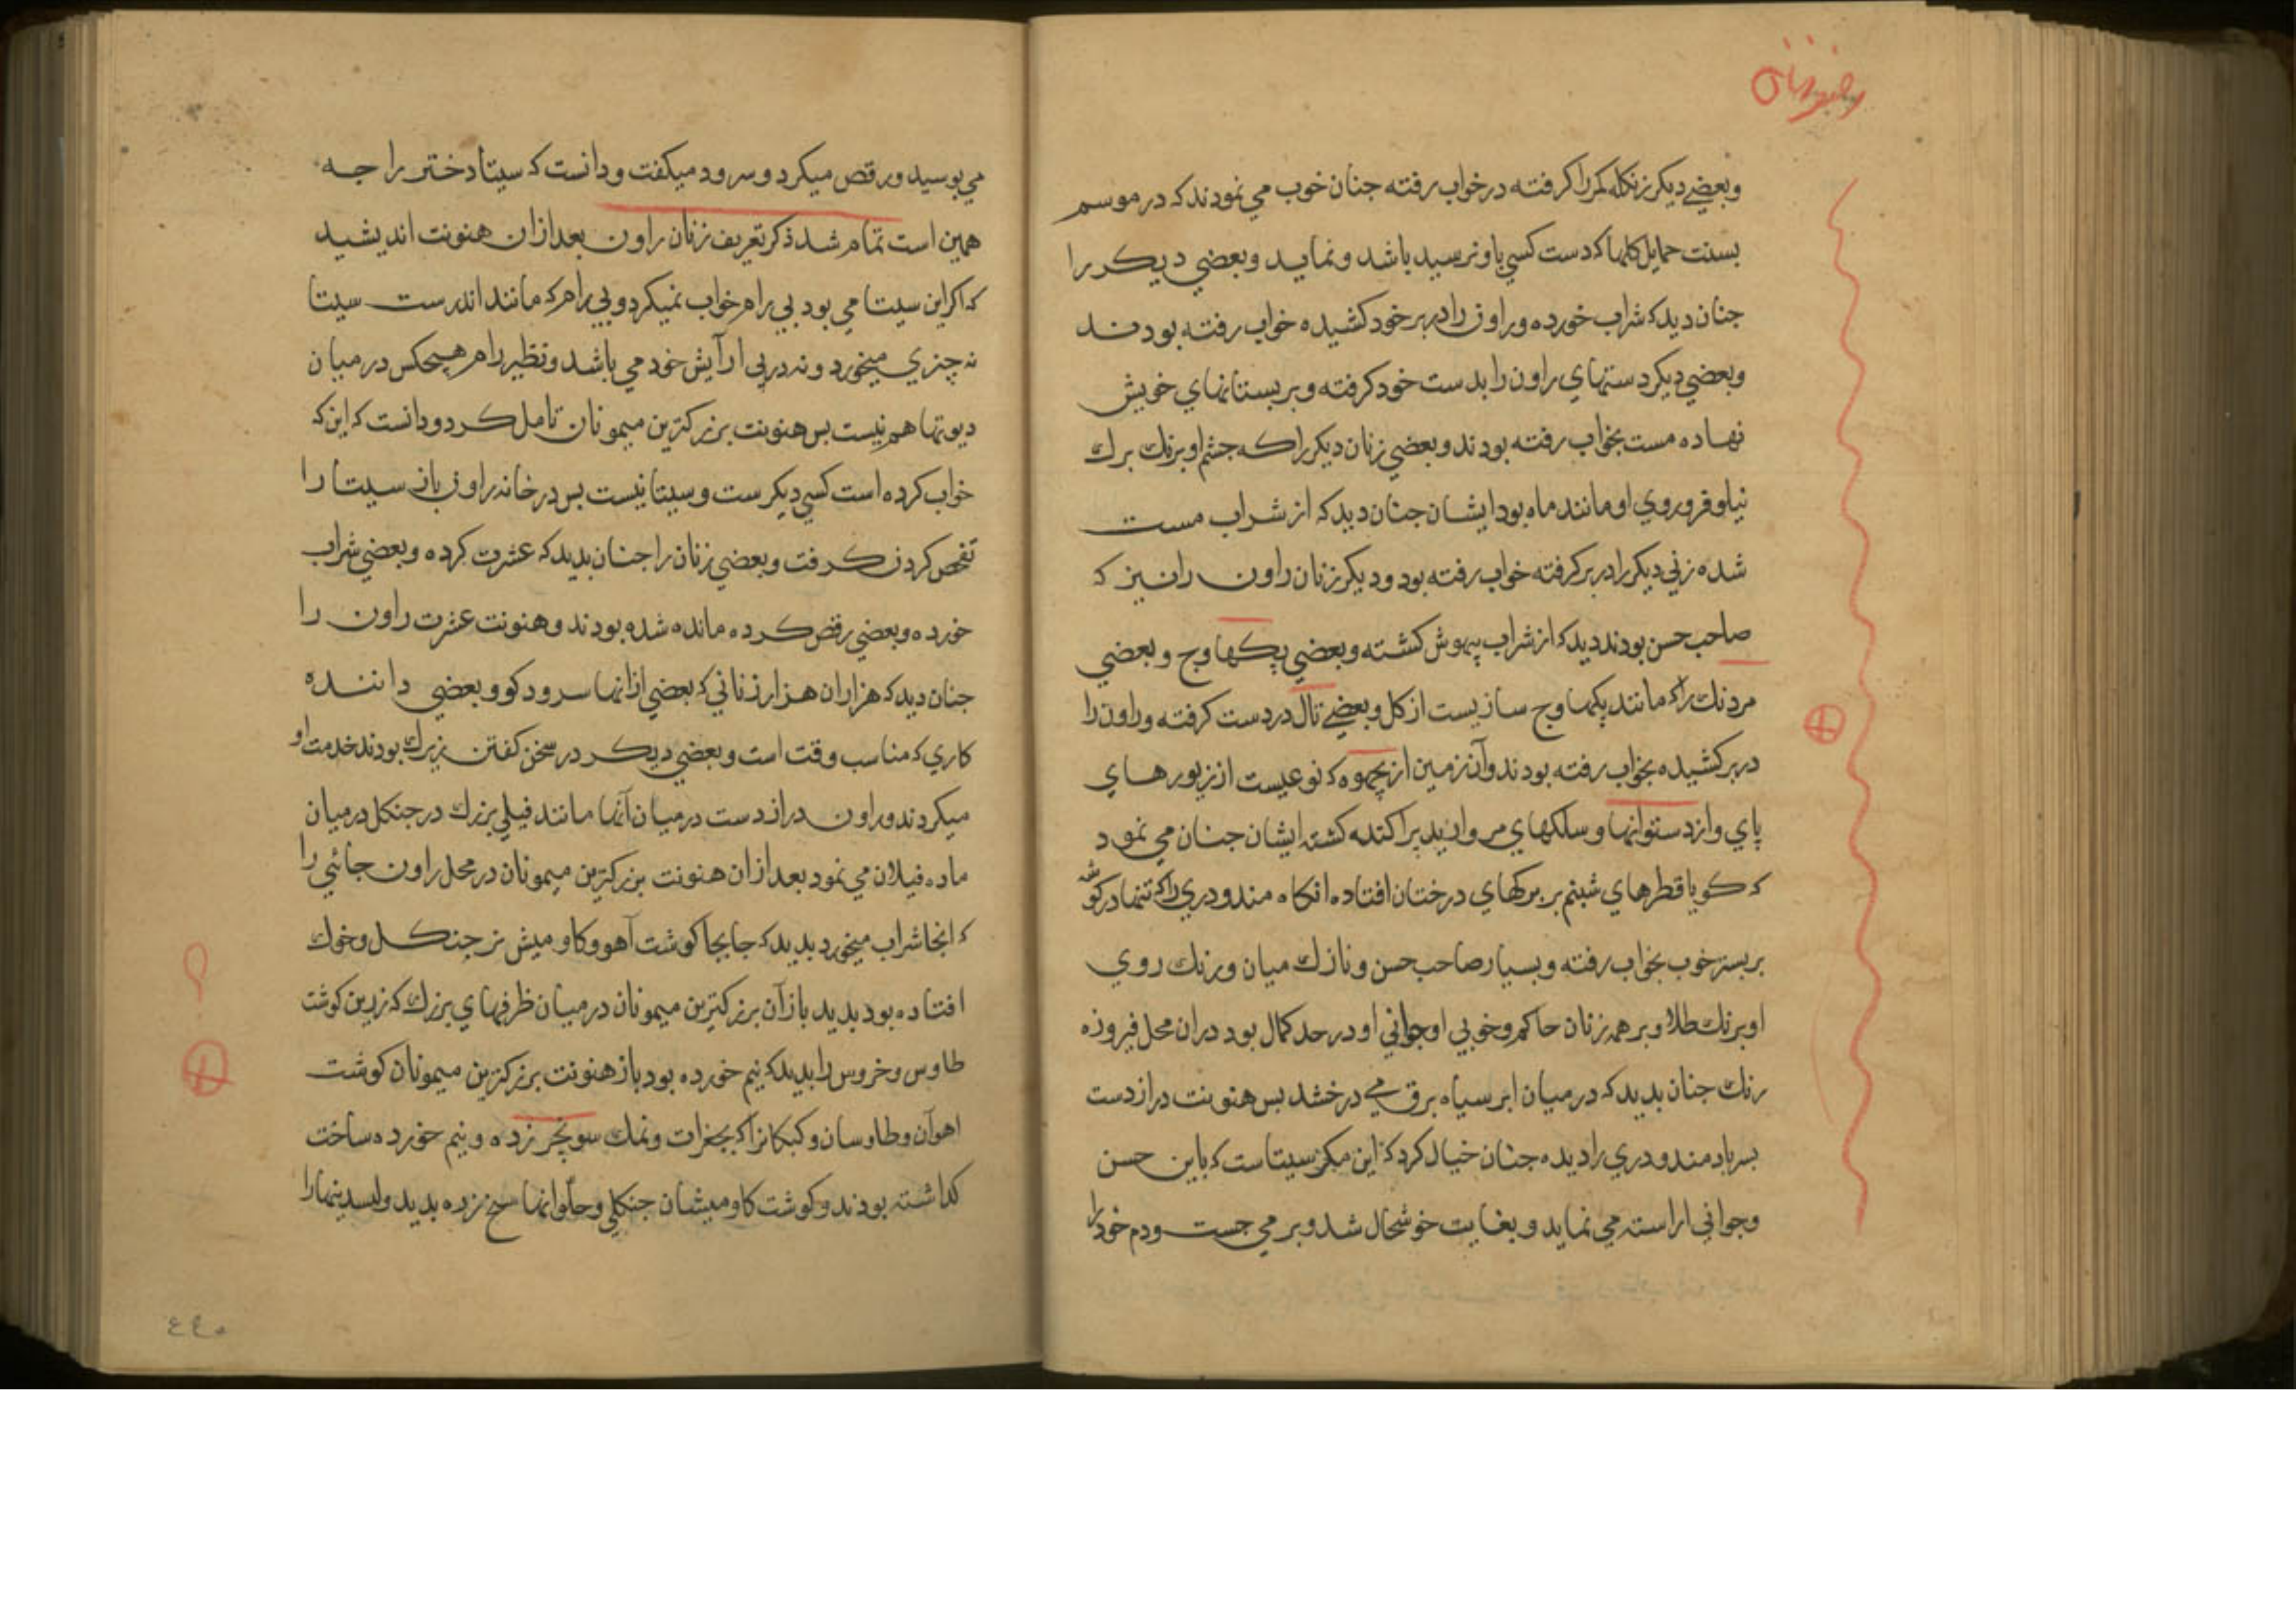 وبعضي ديكر زنكله كمر را كرفته درخواب رفته جنان خوب مي نمودند كه درموسم
بسنت حمايل كلها كه دست كسي باو نرسيد باشد ونمايد وبعضي ديكر را
جنان ديد كه شراب خورده وراون را دربر خود كشيده خواب رفته بودند
وبعضي ديكر دستهاي راون را بدست خود كرفته وبر پستانهاي خويش
نهاده مست بخواب رفته بودند وبعضي زنان ديكر را كه جشم او برنك برك
نيلوفر وروي او مانند ماه بود ايشان جنان ديد كه از شراب مست
شده زني ديكر را دربر كرفته خواب رفته بود وديكر زنان راون را نيز كه
صاحب حسن بودند ديد كه از شراب بيهوش كشته وبعضي پكهاوج وبعضي
مردنك را كه مانند پكهاوج سازيست از كل وبعضي تال دردست كرفته وراون را
دربر كشيده بخواب رفته بودند وآن زمين از بچهوه كه نوعيست از زيورهاي
پاي واز دستوانها وسلكهاي مرواريد پراكنده كشته ايشان جنان مي نمود
كه كويا قطرهاي شبنم بر بركهاي درختان افتاده انكاه مندودري را كه تنها در كوشه
بر بستر خوب بخواب رفته وبسيار صاحب حسن ونازك ميان ورنك روي
او برنك طلا وبر همه زنان حاكم وخوبي او جواني او درحد كمال بود دران محل فيروزه
رنك جنان بديد كه درميان ابر سياه برق مي درخشد بس هنونت درازدست
بسر باد مندودري را ديده جنان خيال كرد كه اين مكر سيتا ست كه باين حسن
وجواني اراسته مي نمايد وبغايت خوشحال شد وبر مي جست ودم خود را
مي بوسيد ورقص ميكرد وسرود ميكفت ودانست كه سيتا دختر راجه
همين است تمام شد ذكر تعريف زنان راون بعد ازان هنونت انديشيد
كه اكر اين سيتا مي بود بي رام خواب نميكرد وبي رام كه مانند اندرست سيتا
نه چيزي ميخورد ونه درپي آرايش خود مي باشد ونظير رام هيچكس درميان
ديوتها هم نيست بس هنونت بزركترين ميمونان تامل كرد ودانست كه اين كه
خواب كرده است كسي ديكر ست وسيتا نيست بس در خانه راون باز سيتا را
تفحص كردن كرفت وبعضي زنان را جنان بديد كه عشرت كرده وبعضي شراب
خورده وبعضي رقص كرده مانده شده بودند وهنونت عشرت راون را
جنان ديد كه هزاران هزار زناني كه بعضي ازانها سرود كو وبعضي داننده
كاري كه مناسب وقت است وبعضي ديكر در سخن كفتن زيرك بودند خدمت او
ميكردند وراون درازدست درميان آنها مانند فيلي بزرك در جنكل درميان
ماده فيلان مي نمود بعد ازان هنونت بزركترين ميمونان در محل راون جائي را
كه انجا شراب ميخورد بديد كه جا بجا كوشت آهو وكاوميش نر جنكل وخوك
افتاده بود بديد باز آن بزركترين ميمونان درميان ظرفهاي بزرك كه زرين كوشت
طاوس وخروس را بديد كه نيم خورده بود باز هنونت بزركترين ميمونان كوشت
اهوآن وطاوسان وكبكانرا كه بجغرات ونمك سونچر زده ونيم خورده ساخت
كذاشته بودند وكوشت كاوميشان جنكلي وحلوانها سيخ زده بديد وليسدينهارا
٤٤٠